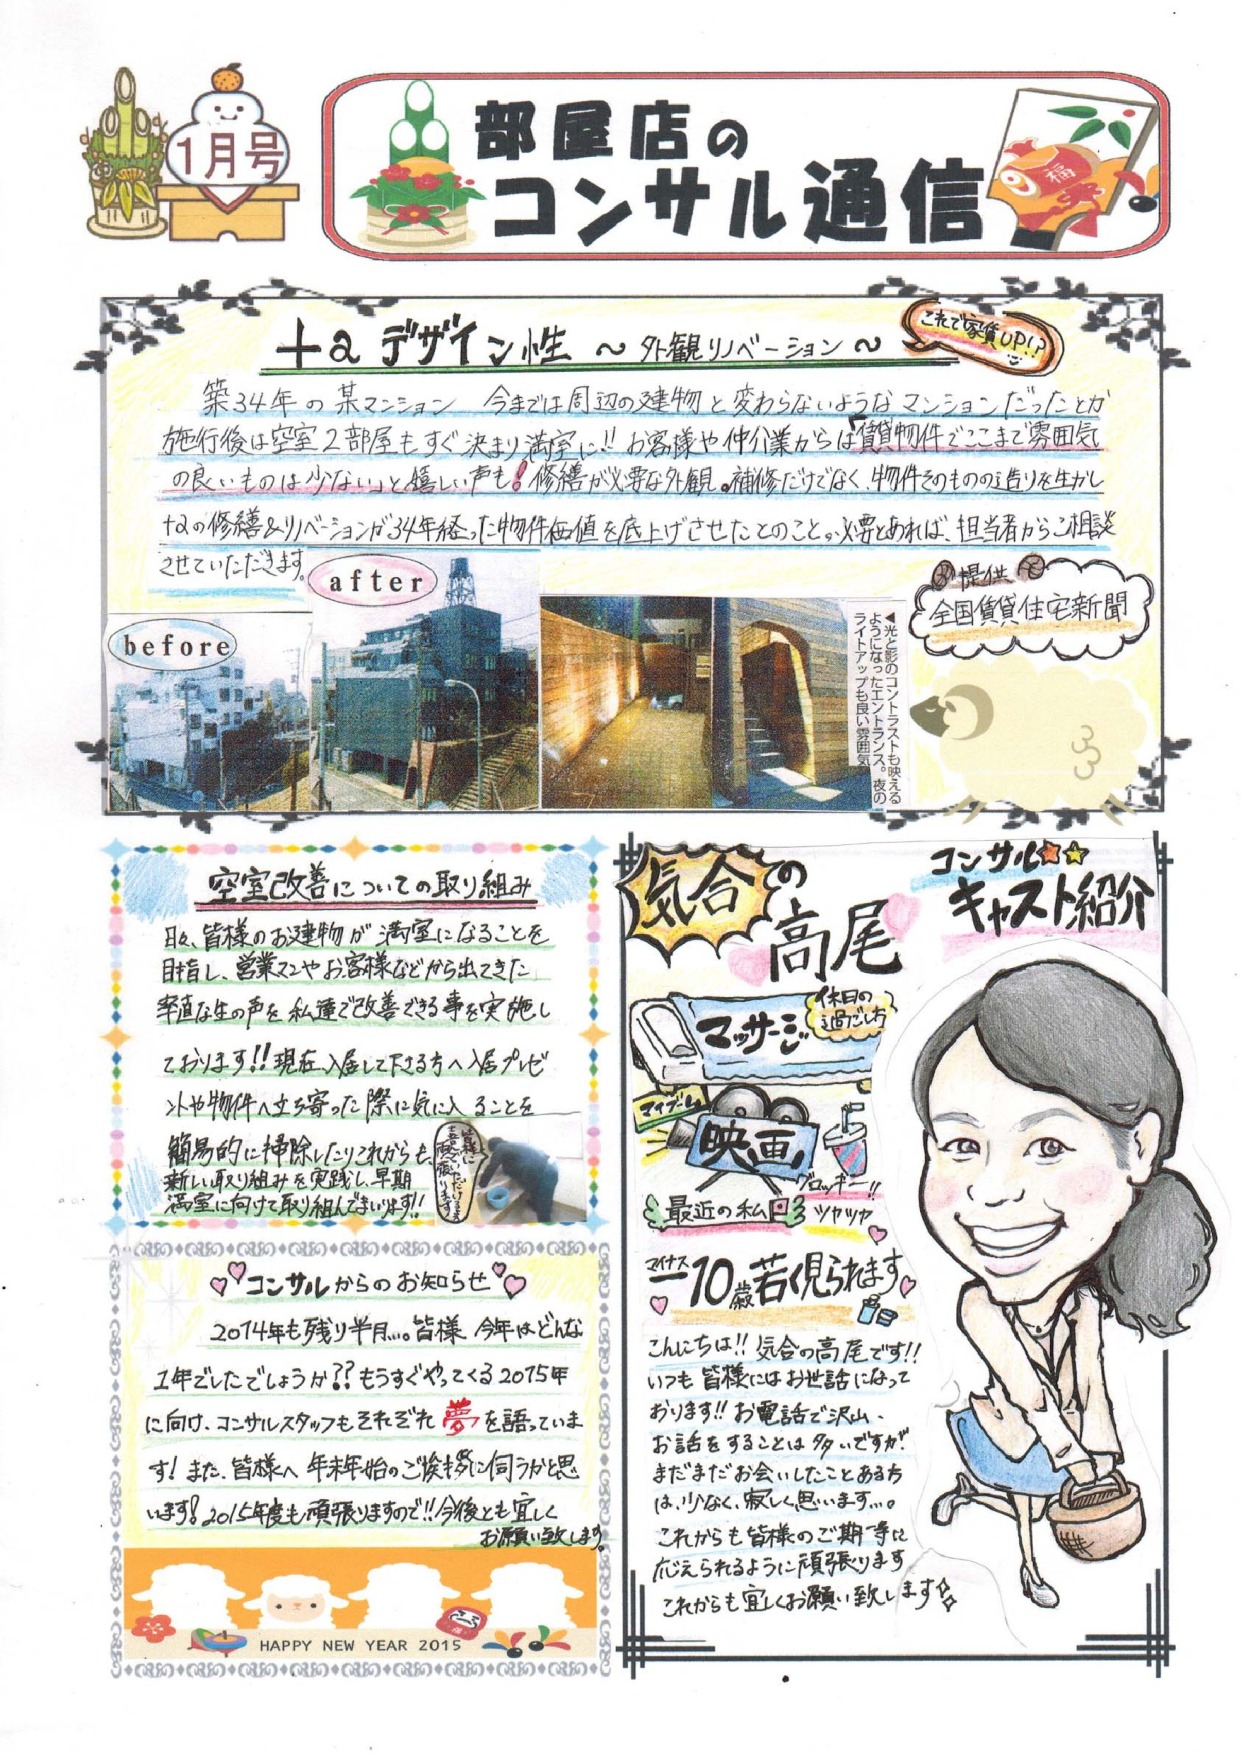 1月号
部屋店の
コンサル通信
福
+a デザイン性 ～ 外観リノベーション ～
これで家賃UP!?
築34年の某マンション 今までは周辺の建物と変わらないようなマンションだったとか
施行後は空室2部屋もすぐ決まり満室に!! お客様や仲介業からは「賃貸物件でここまで雰囲気
の良いものは少ない」と嬉しい声も! 修繕が必要な外観。補修だけでなく、物件そのものの造りを生かし
+aの修繕&リノベーションが34年経った物件価値を底上げさせたとのこと。必要とあれば、担当者からご相談
させていただきます。
before
after
◀光と影のコントラストも映える
ようになったエントランス。夜の
ライトアップも良い雰囲気
提供
全国賃貸住宅新聞
空室改善についての取り組み
日々、皆様のお建物が満室になることを
目指し、営業マンやお客様などから出てきた
率直な生の声を私達で改善できる事を実施し
ております!!現在、入居して下さる方へ入居プレゼ
ントや物件へ立ち寄った際に気に入ることを
簡易的に掃除したりこれからも、
新しい取り組みを実践し、早期
満室に向けて取り組んでまいります!!
皆様に
喜んでいただけるよう
頑張ります
コンサルからのお知らせ
2014年も残り半月...。皆様 今年はどんな
1年でしたでしょうか?? もうすぐやってくる2015年
に向け、コンサルスタッフもそれぞれ夢を語っていま
す! また、皆様へ 年末年始のご挨拶に伺うかと思
います! 2015年度も頑張りますので!! 今後とも宜しく
お願い致します。
HAPPY NEW YEAR 2015
気合の
高尾
コンサル
キャスト紹介
マッサージ
休日の
過ごし方
マイブーム
映画
グロッキー!!
最近の私
ツヤツヤ
マイナス
-10歳若く見られます
こんにちは!! 気合の高尾です!!
いつも皆様にはお世話になって
おります!! お電話で沢山、
お話をすることは多いですが
まだまだお会いしたことある方
は、少なく、寂しく思います...。
これからも皆様のご期待に
応えられるように頑張ります
これからも宜しくお願い致します